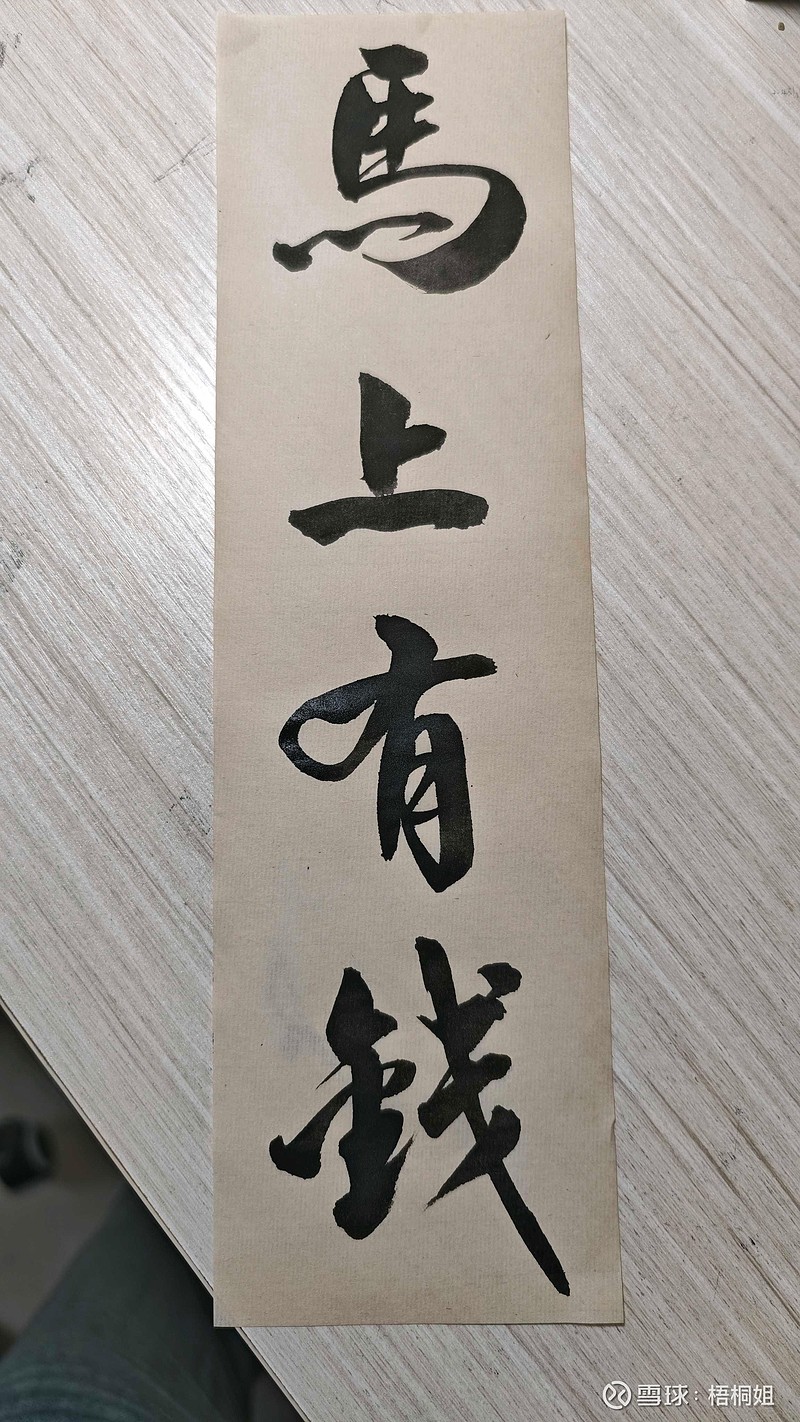 馬上有錢
雪球：梧桐姐